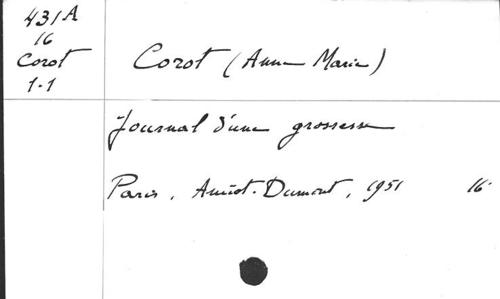 431A
16
Corot
1-1
Corot (Anne Marie)
Journal d'une grossesse
Paris, Amiot-Dumont, 1951 16°